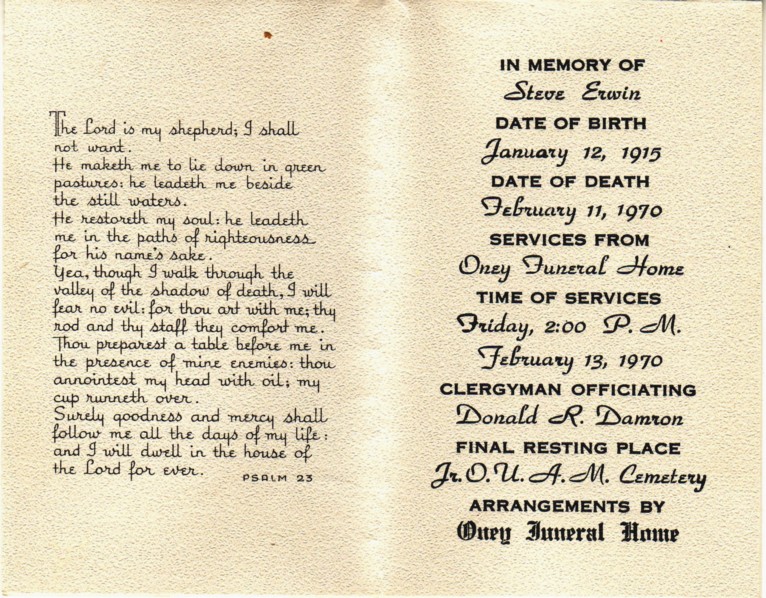 The Lord is my shepherd; I shall
not want.
He maketh me to lie down in green
pastures: he leadeth me beside
the still waters.
He restoreth my soul: he leadeth
me in the paths of righteousness
for his name's sake.
Yea, though I walk through the
valley of the shadow of death, I will
fear no evil: for thou art with me; thy
rod and thy staff they comfort me.
Thou preparest a table before me in
the presence of mine enemies: thou
annointest my head with oil; my
cup runneth over.
Surely goodness and mercy shall
follow me all the days of my life:
and I will dwell in the house of
the Lord for ever.
PSALM 23
IN MEMORY OF
Steve Erwin
DATE OF BIRTH
January 12, 1915
DATE OF DEATH
February 11, 1970
SERVICES FROM
Oney Funeral Home
TIME OF SERVICES
Friday, 2:00 P. M.
February 13, 1970
CLERGYMAN OFFICIATING
Donald R. Damron
FINAL RESTING PLACE
Jr. O. U. A. M. Cemetery
ARRANGEMENTS BY
Oney Funeral Home